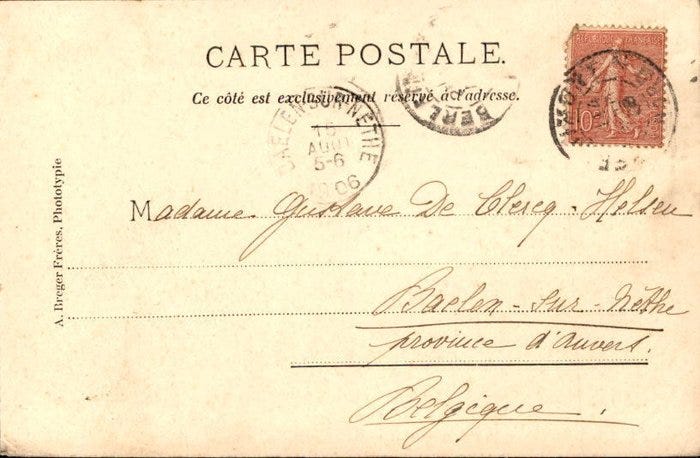 CARTE POSTALE.
Ce côté est exclusivement réservé à l'adresse.
RÉPUBLIQUE FRANÇAISE
10
BAELEN-SUR-NETHE
15
AOUT
5-6
1906
Madame Gustave De Clercq-Helsen
Baelen-sur-Nèthe
province d'Anvers.
Belgique.
A. Breger Frères, Phototypie